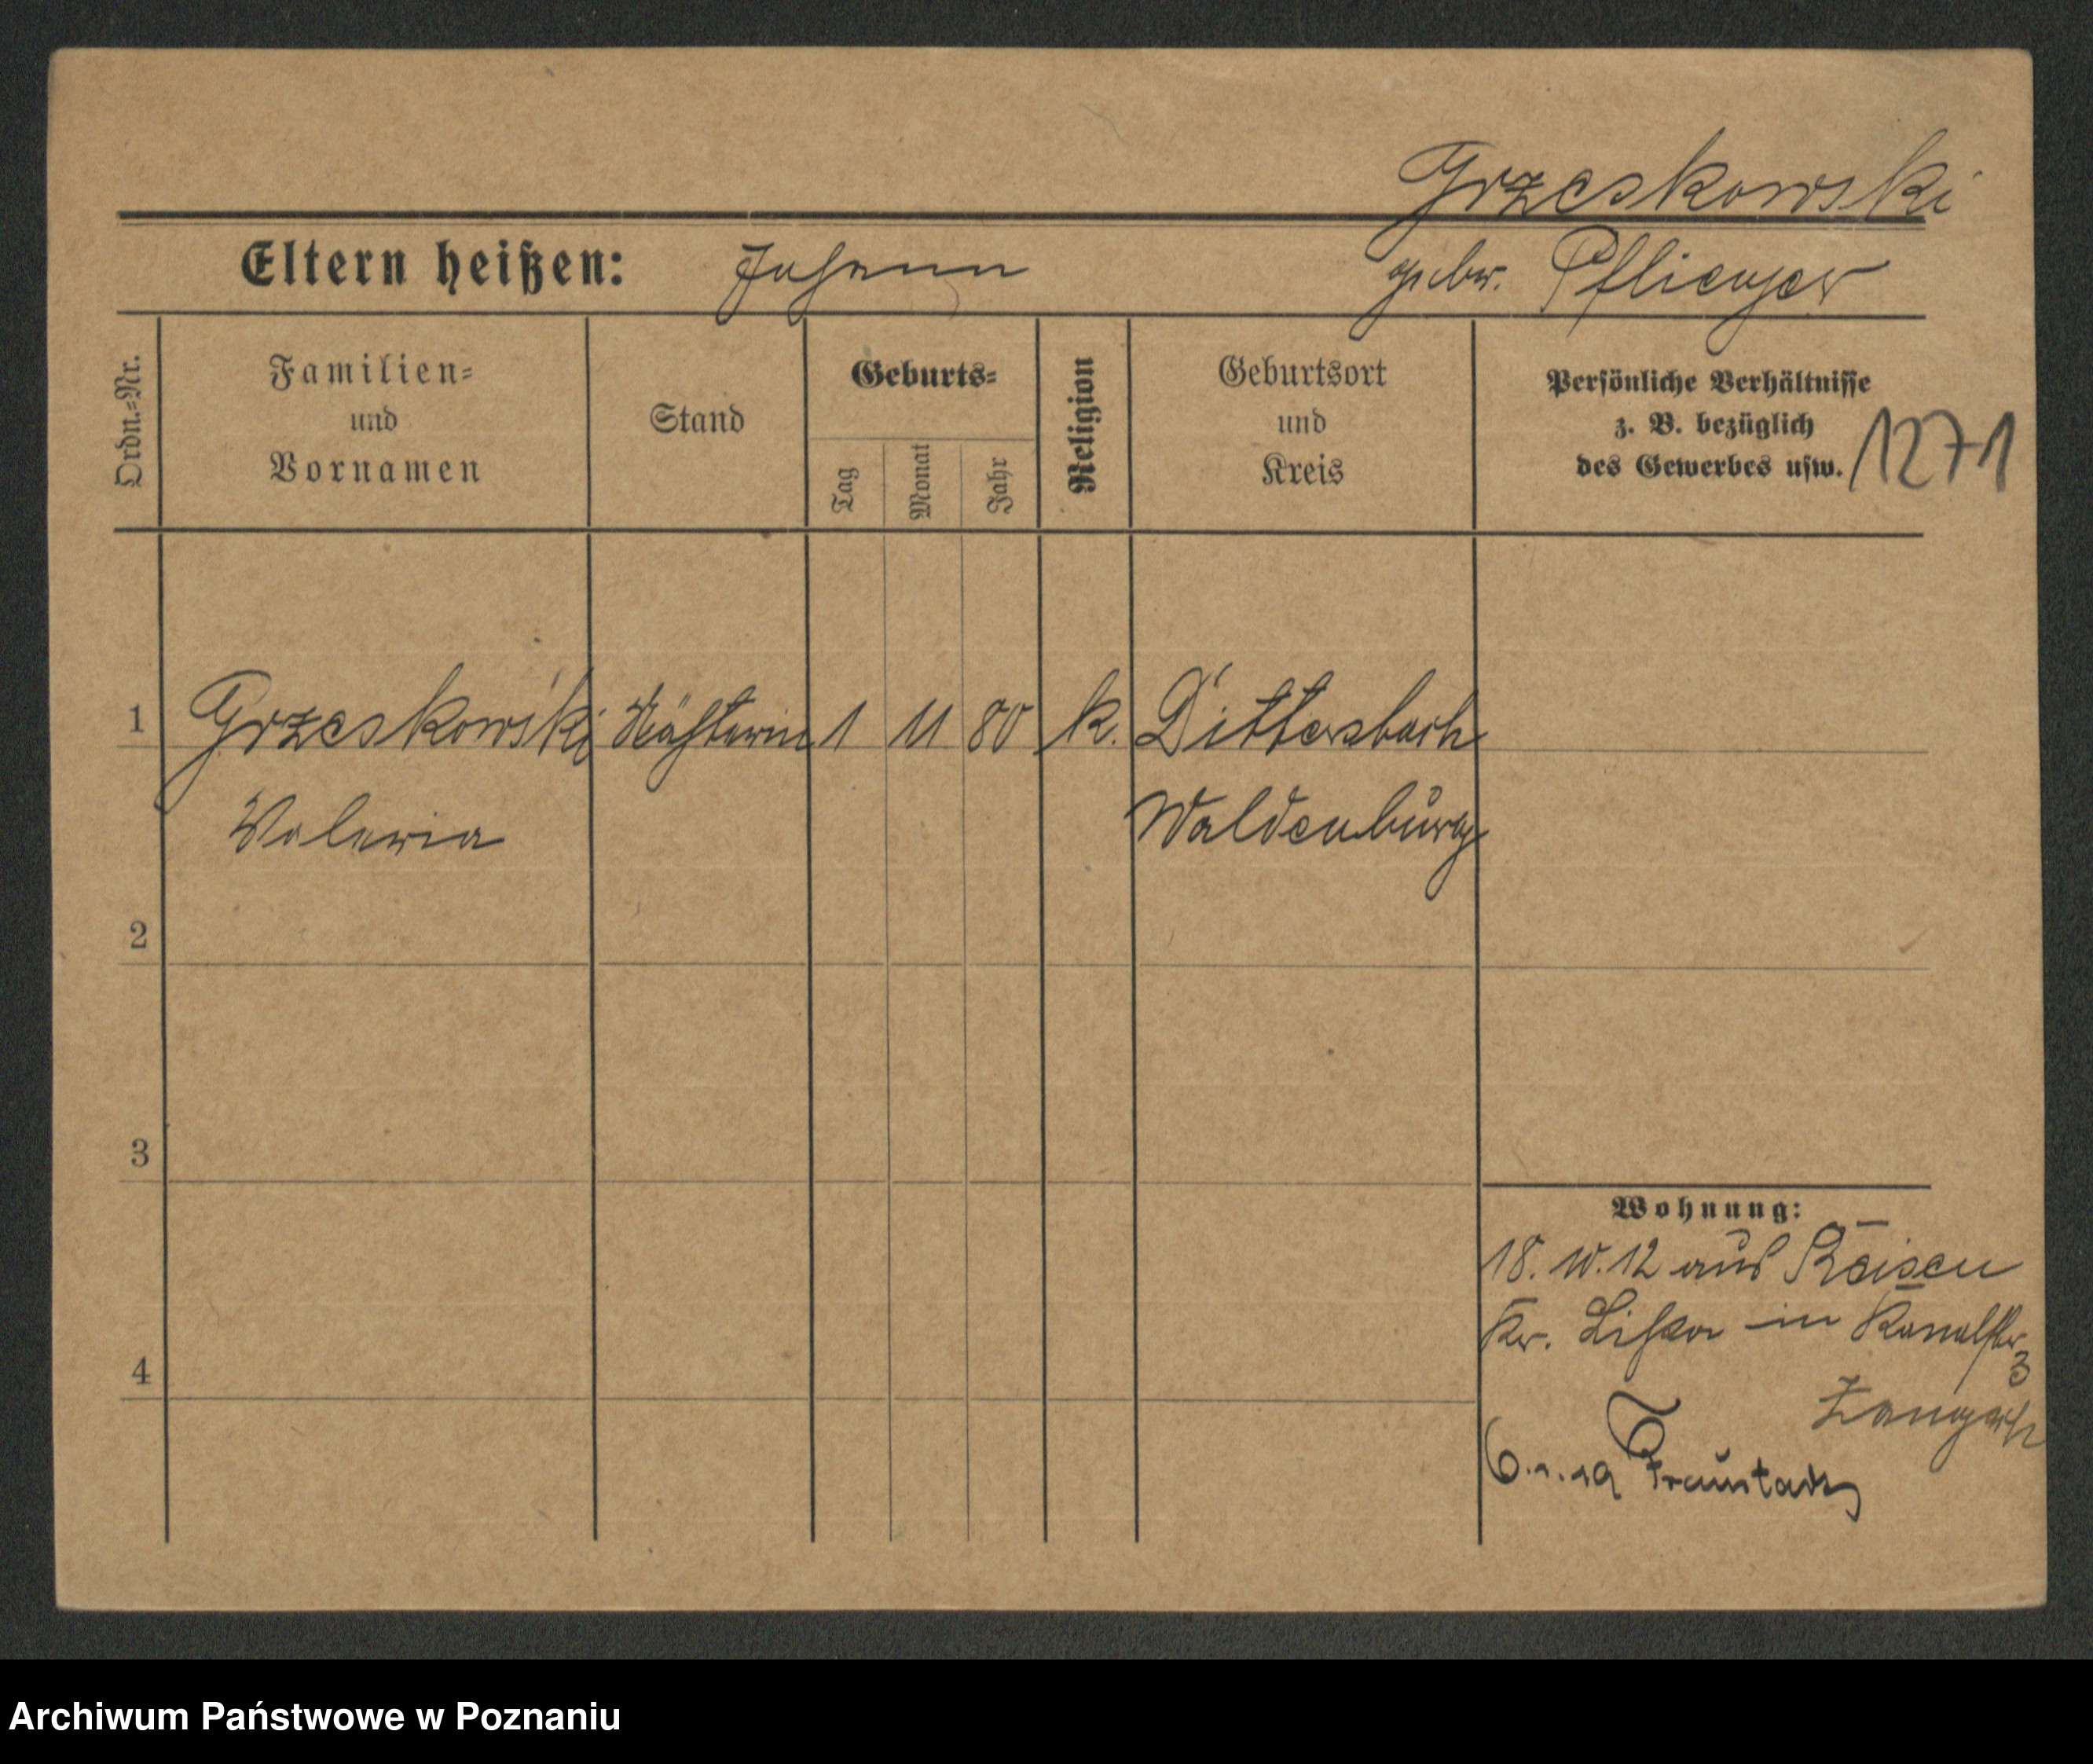 Grzeskowski
Eltern heißen: Johann gebor. Pflieger
Ordn.=Nr.
Familien=
und
Vornamen
Stand
Geburts=
Tag
Monat
Jahr
Religion
Geburtsort
und
Kreis
Persönliche Verhältnisse
z. B. bezüglich
des Gewerbes usw.
1271
1 Grzeskowski Nähterin 1 11 80 k. Dittersbach
Valeria Waldenburg
2
3
4
Wohnung:
18. 10. 12 aus Reisen
Kr. Lissa in Kanalstr.
3
Fraustadt
Archiwum Państwowe w Poznaniu